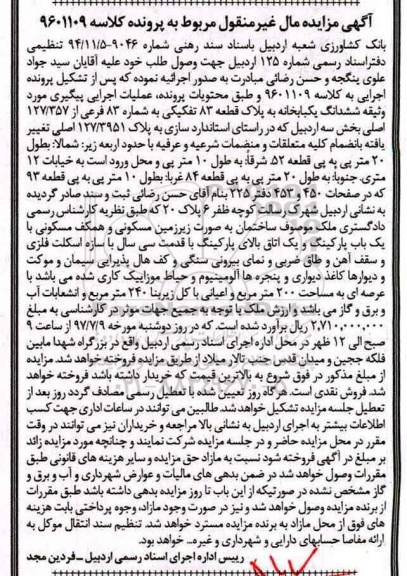 آگهی مزایده مال غیرمنقول مربوط به پرونده کلاسه ۹۶۰۱۱۰۹
بانک کشاورزی شعبه اردبیل باستناد سند رهنی شماره ۹۰۴۶-۹۴/۱۱/۵ تنظیمی
دفتراسناد رسمی شماره ۱۲۵ اردبیل جهت وصول طلب خود علیه آقایان سید جواد
علوی ینگجه و حسن رضائی مبادرت به صدور اجرائیه نموده که پس از تشکیل پرونده
اجرایی به کلاسه ۹۶۰۱۱۰۹ و طبق محتویات پرونده، عملیات اجرایی پیگیری مورد
وثیقه ششدانگ یکبابخانه به پلاک قطعه ۸۳ تفکیکی به شماره ۸۳ فرعی از ۱۲۷/۳۵۷
اصلی بخش سه اردبیل که در راستای استاندارد سازی به پلاک ۱۲۷/۳۹۵۱ اصلی تغییر
یافته بانضمام کلیه متعلقات و منضمات شرعیه و عرفیه با حدود اربعه زیر: شمالا: بطول
۲۰ متر پی به پی قطعه ۵۲. شرقاً: به طول ۱۰ متر پی و محل ورود است به خیابان ۱۲
متری. جنوبا: به طول ۲۰ متر پی به پی قطعه ۸۴ غربا: بطول ۱۰ متر پی به پی قطعه ۹۳
که در صفحات ۴۵۰ و ۴۵۳ دفتر ۲۲۵ بنام آقای حسن رضائی ثبت و سند صادر گردیده
به نشانی اردبیل شهرک رسالت کوچه ظفر ۶ پلاک ۲۰ که طبق نظریه کارشناس رسمی
دادگستری ملک موصوف ساختمان به صورت زیرزمین مسکونی و همکف مسکونی با
یک باب پارکینگ و یک اتاق بالای پارکینگ با قدمت سی سال با سازه اسکلت فلزی
و سقف آهن و طاق ضربی و نمای بیرونی سنگی و کف هال پذیرایی سیمان و موکت
و دیوارها کاغذ دیواری و پنجره ها آلومینیوم و حیاط موزاییک کاری شده می باشد با
عرصه ای به مساحت ۲۰۰ متر مربع و اعیانی با کل زیربنا ۲۴۰ متر مربع و انشعابات آب
و برق و گاز می باشد و ارزش ملک با توجه به جمیع جهات موثر در کارشناسی به مبلغ
۲٫۷۱۰٫۰۰۰٫۰۰۰ ریال برآورد شده است. که در روز دوشنبه مورخه ۹۷/۷/۹ از ساعت ۹
صبح الی ۱۲ ظهر در محل اداره اجرای اسناد رسمی اردبیل واقع در بزرگراه شهدا مابین
فلکه ججین و میدان قدس جنب تالار میلاد از طریق مزایده فروخته خواهد شد. مزایده
از مبلغ مذکور در فوق شروع به بالاترین قیمت که خریدار داشته باشد فروخته خواهد
شد. فروش نقدی است. هرگاه روز تعیین شده با تعطیل رسمی مصادف گردد روز بعد از
تعطیل جلسه مزایده تشکیل خواهد شد. طالبین می توانند در ساعات اداری جهت کسب
اطلاعات بیشتر به اجرای اردبیل به نشانی بالا مراجعه و خریداران نیز می توانند در وقت
مقرر در محل مزایده حاضر و در جلسه مزایده شرکت نمایند و چنانچه مورد مزایده زائد
بر مبلغ در آگهی فروخته شود نسبت به مازاد حق مزایده و سایر هزینه های قانونی طبق
مقررات وصول خواهد شد در ضمن بدهی های مالیات و عوارض شهرداری و آب و برق و
گاز مشخص نشده در صورتیکه از این باب تا روز مزایده بدهی داشته باشد طبق مقررات
از برنده مزایده وصول خواهد شد و نیز در صورت وجود مازاد، وجوه پرداختی بابت هزینه
های فوق از محل مازاد به برنده مزایده مسترد خواهد شد. تنظیم سند انتقال موکول به
ارائه مفاصا حسابهای دارایی و شهرداری و غیره... خواهد بود.
رییس اداره اجرای اسناد رسمی اردبیل - فردین مجد